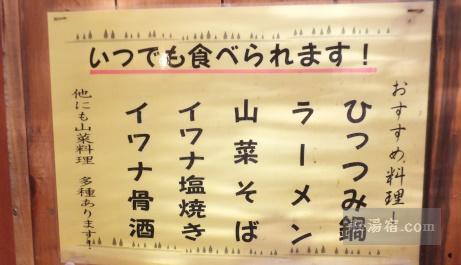 いつでも食べられます！
おすすめ料理！
ひっつみ鍋
ラーメン
山菜そば
イワナ塩焼き
イワナ骨酒
他にも山菜料理 多種あります！
湯宿.com